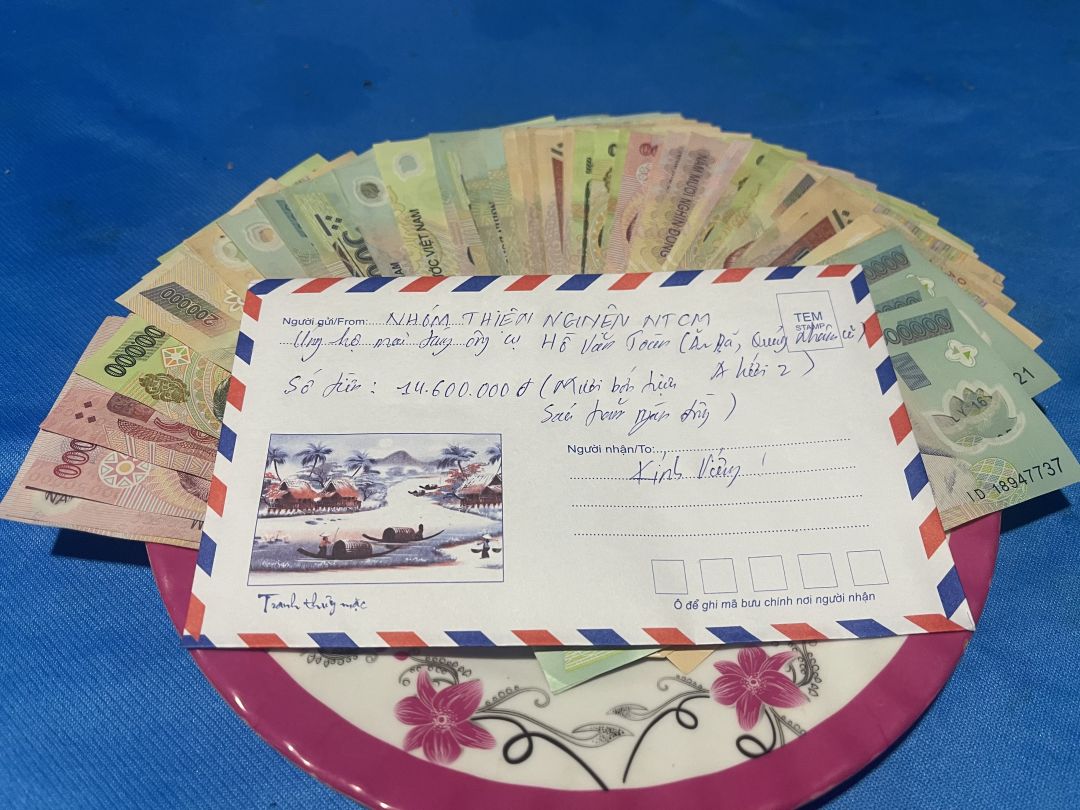 200000
00000
000
ƯỚC VIỆT NAM
NAM
NĂM MƯƠI NGHÌN ĐỒNG
0000
00000
21
ID 18947737
Người gửi/From: NHÓM THIỆN NGUYỆN NTCM
Ủng hộ mai táng ông cụ Hồ Văn
TEM
STAMP
Số tiền: 14.600.000đ (Mười bốn triệu
Sáu trăm ngàn đồng)
Người nhận/To:
Kính Viếng
Tranh thủy mặc
Ô để ghi mã bưu chính nơi người nhận